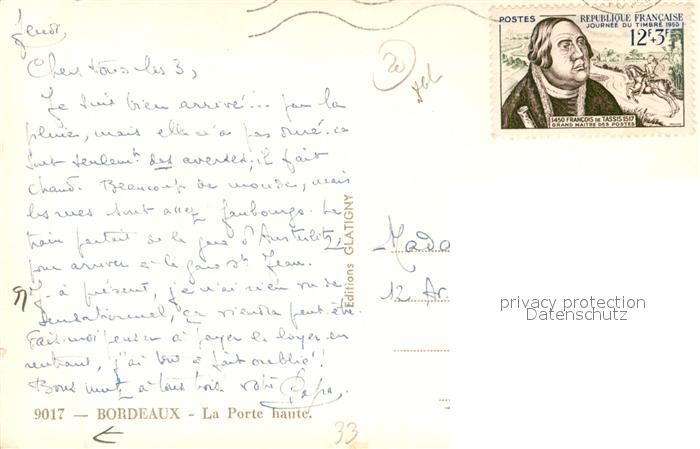 Jeudi,
Chers tous les 3,
Je suis bien arrivé... par la
pluie, mais elle n'a pas duré. ce
sont seulemt des averses, il fait
chaud. Beaucoup de monde, mais
les rues sont assez faubourgs. Le
train partait de la gare d'Austerlitz,
pour arriver à la gare St Jean.
à présent, je n'ai rien vu de
sensationnel, ça viendra peut-être.
Fais-moi penser à payer le loyer en
rentrant, j'ai tout à fait oublié!
Bons à tous trois votre Papa.
9017 — BORDEAUX - La Porte haute.
33
20
Editions GLATIGNY
POSTES RÉPUBLIQUE FRANÇAISE
JOURNÉE DU TIMBRE 1956
12F+3F
1450 FRANÇOIS DE TASSIS 1517
GRAND MAITRE DES POSTES
Mada
12 Av.
privacy protection
Datenschutz